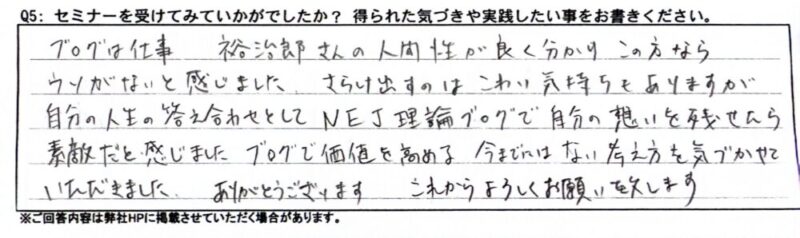 Q5: セミナーを受けてみていかがでしたか？ 得られた気づきや実践したい事をお書きください。
ブログは仕事 裕治郎さんの人間性が良く分かり この方なら
ウソがないと感じました。さらけ出すのは こわい気持ちもありますが
自分の人生の答え合わせとして NEJ理論ブログで自分の想いを残せたら
素敵だと感じました ブログで価値を高める 今までにはない考え方を気づかせて
いただきました。 ありがとうございます これからよろしくお願い致します
※ご回答内容は弊社HPに掲載させていただく場合があります。